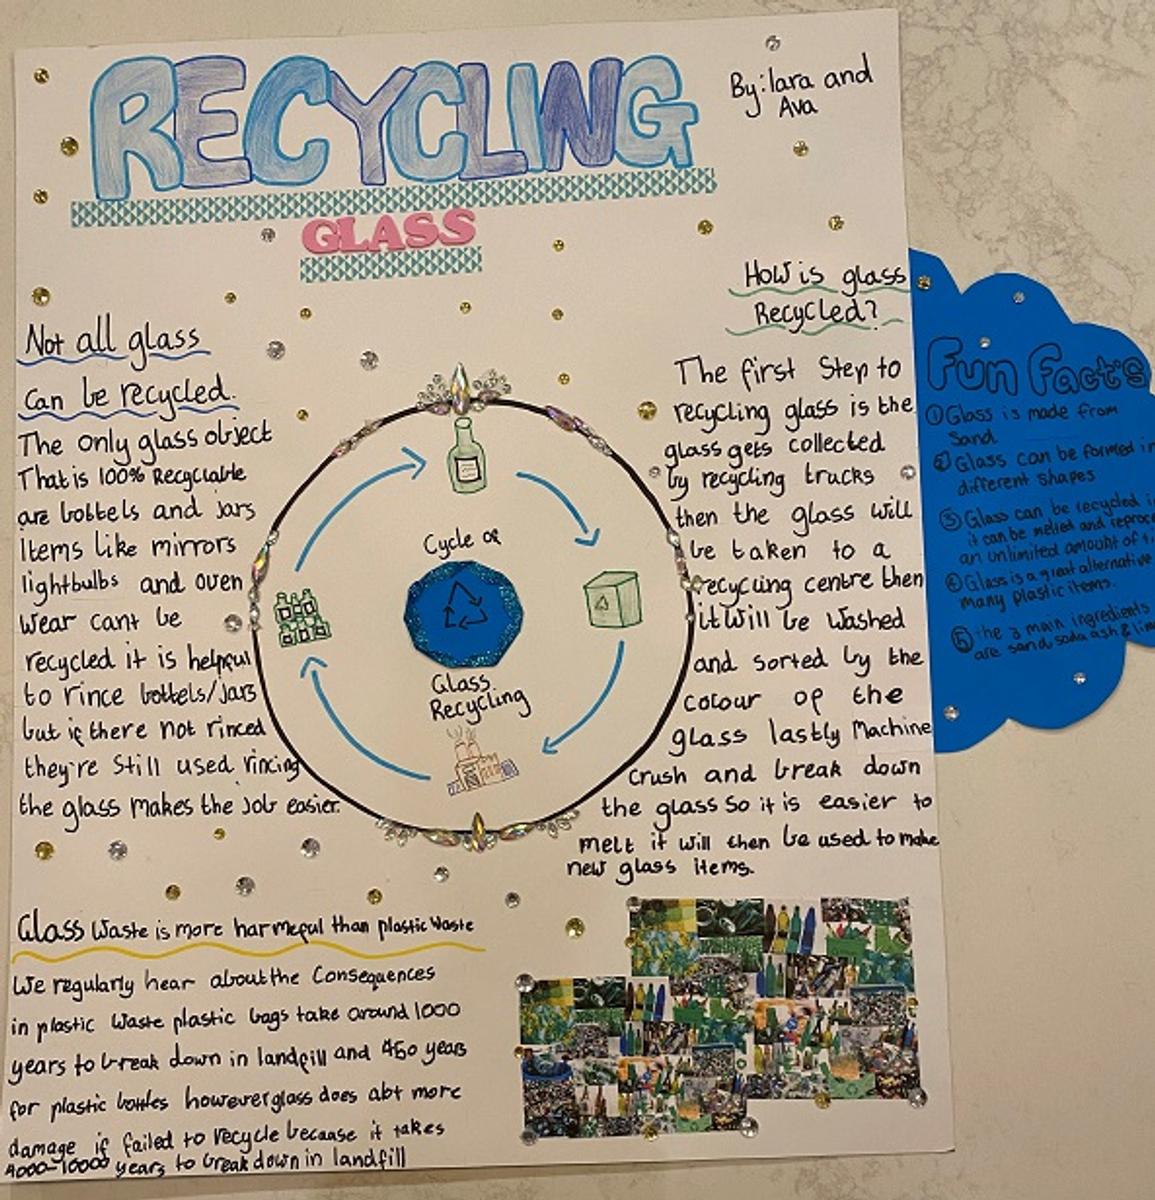 RECYCLING
By: lara and
Ava
GLASS
Not all glass
can be recycled.
The only glass object
That is 100% Recyclable
are bottels and jars
Items like mirrors
lightbulbs and oven
wear cant be
recycled it is helpful
to rince bottels/jars
but if there not rinced
they're Still used rincing
the glass makes the job easier.
Cycle of
Glass
Recycling
How is glass
Recycled?
The first Step to
recycling glass is the
glass gets collected
by recycling trucks
then the glass will
be taken to a
recycling centre then
it will be washed
and sorted by the
colour of the
glass lastly Machine
crush and break down
the glass so it is easier to
melt it will then be used to make
new glass items.
Fun Fact's
① Glass is made from
Sand
② Glass can be formed in
different shapes
③ Glass can be recycled
it can be melted and
an unlimited amount of
④ Glass is a great alternative
many plastic items.
⑤ the 3 main ingredients
are sand, soda ash &
Glass Waste is more harmeful than plastic waste
We regularly hear about the Consequences
in plastic waste plastic bags take around 1000
years to break down in landfill and 450 years
for plastic bottles however glass does abt more
damage if failed to recycle because it takes
4000-10000 years to break down in landfill